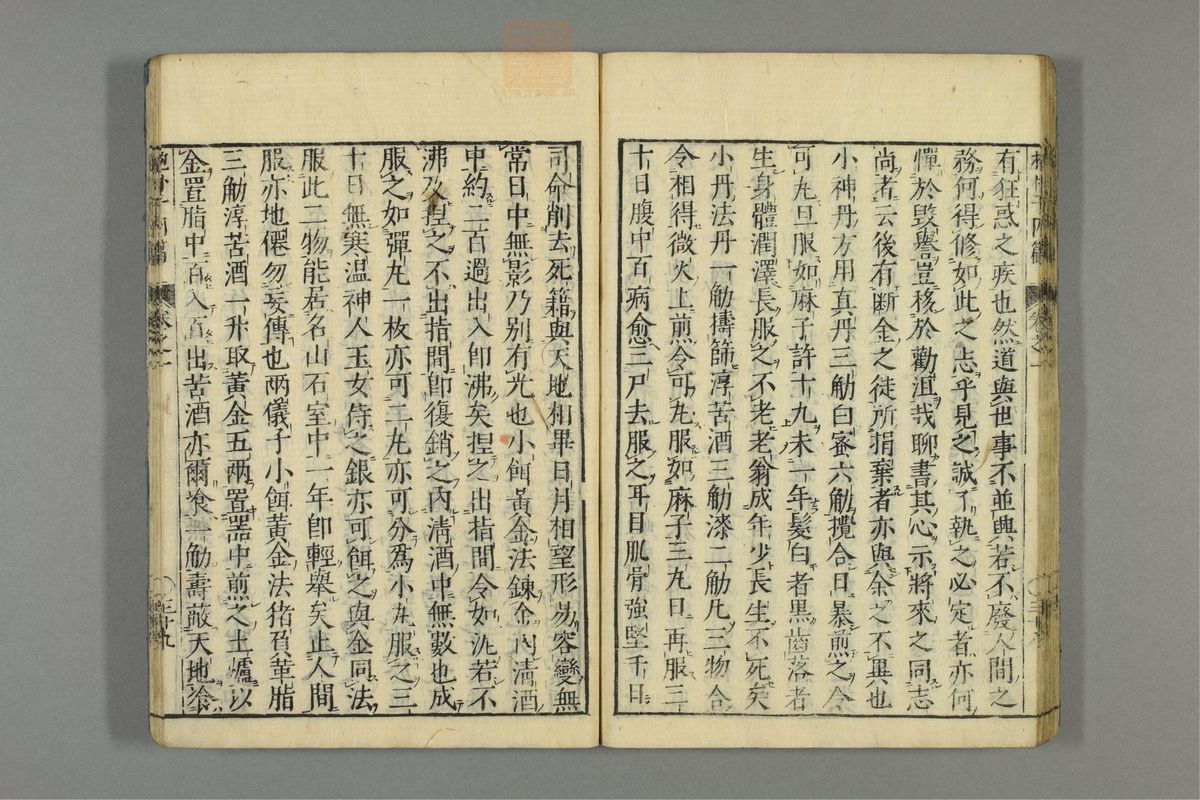 有狂惑之疾也然道與世事不並興若不廢人間之
務何得修如此之志乎見之誠了執之必定者亦何
憚於毀譽豈移於勸沮哉聊書其心示將來之同志
尚者云後有斷金之徒所捐棄者亦與余之不異也
小神丹方用真丹三觔白蜜六觔攪合日暴煎之令
可丸旦服如麻子許十丸未一年髮白者黑齒落者
生身體潤澤長服之不老老翁成年少長生不死矣
小丹法丹一觔擣篩淳苦酒三觔漆二觔凡三物合
令相得微火上煎令可丸服如麻子三丸日再服三
十日腹中百病愈三尸去服之百日肌骨強堅千日
司命削去死籍與天地相畢日月相望形易容變無
常日中無影乃別有光也小餌黃金法錬金內清酒
中約二百過出入卽沸矣捏之出指間令如泥若不
沸及捏之不出指間卽復銷之內清酒中無數也成
服之如彈丸一枚亦可二丸亦可分爲小丸服之三
十日無寒温神人玉女侍之銀亦可餌之與金同法
服此二物能居名山石室中一年卽輕舉矣止人間
服亦地僊勿妄傳也兩儀子小餌黃金法猪負革脂
三觔淳苦酒一升取黃金五兩置器中煎之土爐以
金置脂中百入百出苦酒亦爾飡一觔壽蔽天地飡
抱朴子內篇 卷之一 三十九